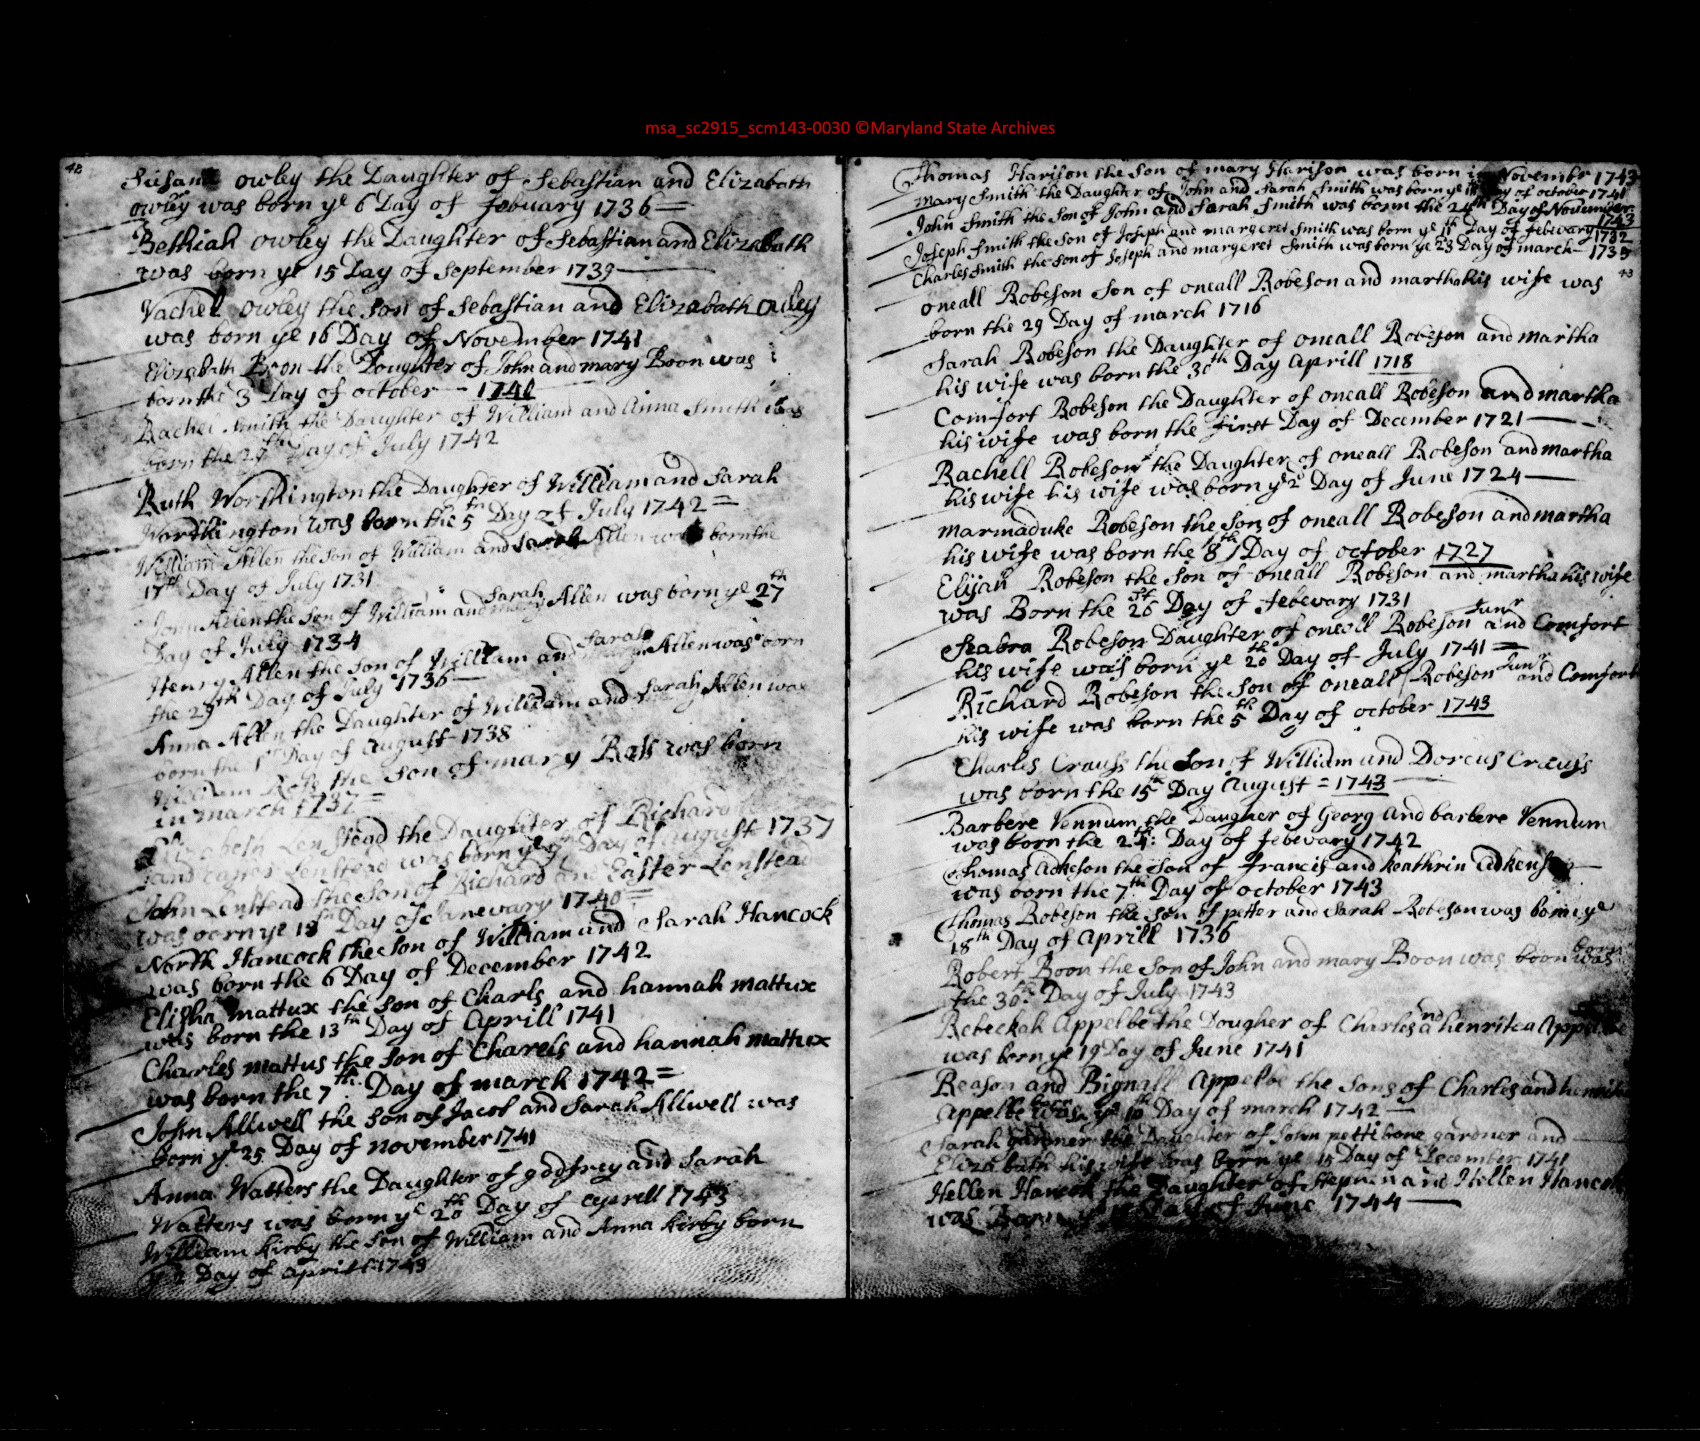 msa_sc2915_scm143-0030 ©Maryland State Archives
42
Susana owley the Daughter of Sebastian and Elizabath
owley was born ye 6 Day of febuary 1736
Bethiah owley the Daughter of Sebastian and Elizabath
was born ye 15 Day of September 1739
Vachel owley the Son of Sebastian and Elizabath owley
was born ye 16 Day of November 1741
Elizabath Boon the Doughter of John and mary Boon was
born the 3 Day of october 1740
Rachel Smith the Daughter of William and Anna Smith was
born the 29th Day of July 1742
Ruth Worthington the Daughter of William and Sarah
Worthington was born the 5th Day of July 1742
William Allen the Son of William and Sarah Allen was born the
17th Day of July 1731
John Allen the Son of William and Sarah Allen was born ye 27th
Day of July 1734
Henry Allen the Son of William and Sarah Allen was born
the 29th Day of July 1736
Anna Allen the Daughter of William and Sarah Allen was
born the 1st Day of august 1738
William Ross the Son of mary Ross was born
in march 1737
Elizabeth Lenstead the Daughter of Richard
and Easter Lenstead was born ye 9th Day of august 1737
John Lenstead the Son of Richard and Easter Lenstead
was born ye 18th Day of Janevary 1740
North Hancock the Son of William and Sarah Hancock
was born the 6 Day of December 1742
Elisha Mattux the Son of Charls and hannah mattux
was born the 13th Day of Aprill 1741
Charles mattus the Son of Charels and hannah mattux
was born the 7th Day of march 1742
John Allwell the Son of Jacob and Sarah Allwell was
born ye 25 Day of november 1741
Anna Watters the Daughter of godfrey and Sarah
Watters was born ye 20th Day of aprill 1743
William Kirby the Son of William and Anna Kirby born
ye 2 Day of aprill 1743
Thomas Harison the Son of mary Harison was born in Novembr 1743
mary Smith the Daughter of John and Sarah Smith was born ye Day of october 1741
John Smith the Son of John and Sarah Smith was born the 24th Day of November
1743
Joseph Smith the Son of Joseph and margeret Smith was born ye 11th Day of febevary 1732
Charles Smith the Son of Joseph and margeret Smith was born ye 23 Day of march 1735
43
oneall Robeson Son of oneall Robeson and martha his wife was
born the 29 Day of march 1716
Sarah Robeson the Daughter of oneall Robeson and martha
his wife was born the 30th Day Aprill 1718
Comfort Robeson the Daughter of oneall Robeson and martha
his wife was born the first Day of December 1721
Rachell Robeson the Daughter of oneall Robeson and martha
his wife his wife was born ye 2d Day of June 1724
marmaduke Robeson the Son of oneall Robeson and martha
his wife was born the 8th Day of october 1727
Elijah Robeson the Son of oneall Robeson and martha his wife
was Born the 26 Day of febevary 1731
Seabra Robeson Daughter of oneall Robeson Junr and Comfort
his wife was born ye 20th Day of July 1741
Richard Robeson the Son of oneall Robeson Junr and Comfort
his wife was born the 5th Day of october 1743
Charles Crauss the Son of William and Dorcus Crauss
was born the 15th Day August 1743
Barbere Vennum the Daugher of Georg and barbere Vennum
was born the 24th: Day of febevary 1742
Thomas Adkeson the Son of francis and keathrin adkens
was born the 7th Day of october 1743
Thomas Robeson the Son of petter and Sarah Robeson was born ye
18th Day of Aprill 1736
Robert Boon the Son of John and mary Boon was boon was born
the 30th Day of July 1743
Rebeckah Appelbe the Dougher of Charles and henritea Appelbe
was born ye 19 Day of June 1741
Reason and Bignall Appelbe the Sons of Charles and henritea
Appelbe was born ye 10th Day of march 1742
Sarah gardner the Daughter of John pettibone gardner and
Elizabath his wife was born ye 15 Day of December 1741
Hellen Hancock the Daughter of Stephen and Hellen Hancock
was Born ye Day of June 1744